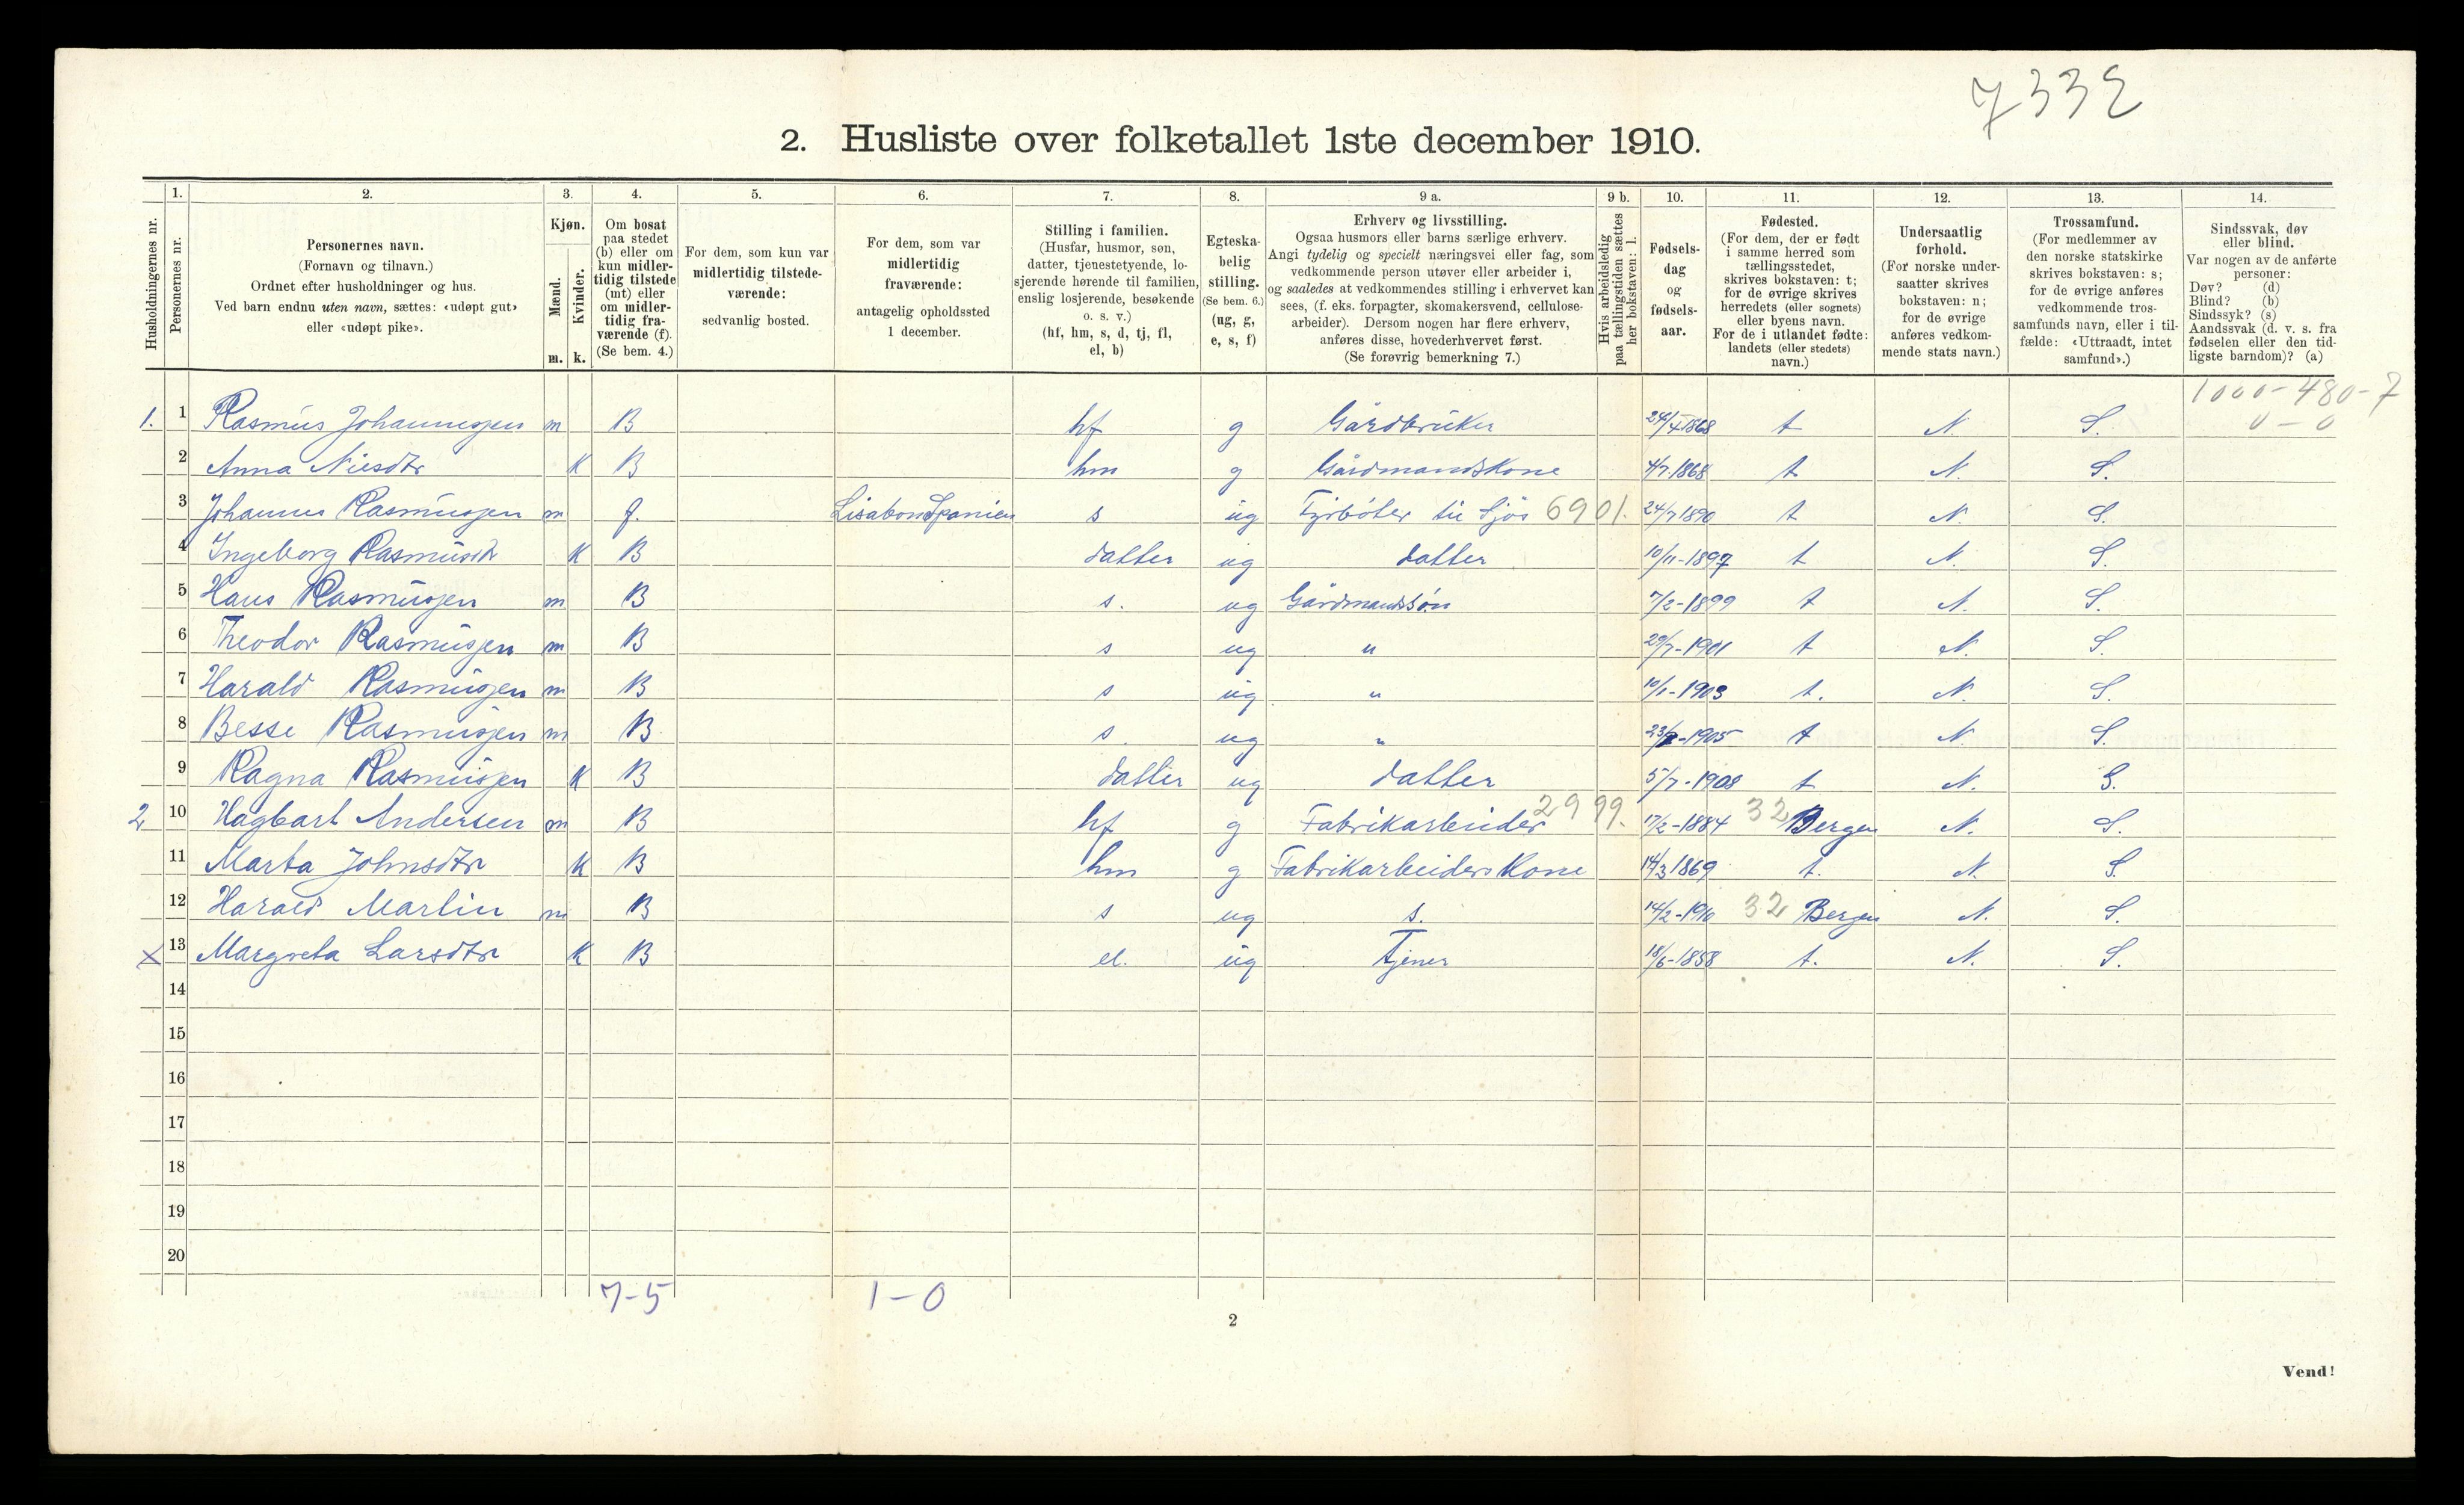 7332
2. Husliste over folketallet 1ste december 1910.
Husholdningernes nr.
1. Personernes nr.
2. Personernes navn. (Fornavn og tilnavn.) Ordnet efter husholdninger og hus. Ved barn endnu uten navn, sættes: «udøpt gut» eller «udøpt pike».
3. Kjøn. Mænd. m. Kvinder. k.
4. Om bosat paa stedet (b) eller om kun midlertidig tilstede (mt) eller om midlertidig fraværende (f). (Se bem. 4.)
5. For dem, som kun var midlertidig tilstedeværende: sedvanlig bosted.
6. For dem, som var midlertidig fraværende: antagelig opholdssted 1 december.
7. Stilling i familien. (Husfar, husmor, søn, datter, tjenestetyende, losjerende hørende til familien, enslig losjerende, besøkende o. s. v.) (hf, hm, s, d, tj, fl, el, b)
8. Egteskabelig stilling. (Se bem. 6.) (ug, g, e, s, f)
9 a. Erhverv og livsstilling. Ogsaa husmors eller barns særlige erhverv. Angi tydelig og specielt næringsvei eller fag, som vedkommende person utøver eller arbeider i, og saaledes at vedkommendes stilling i erhvervet kan sees, (f. eks. forpagter, skomakersvend, cellulosearbeider). Dersom nogen har flere erhverv, anføres disse, hovederhvervet først. (Se forøvrig bemerkning 7.)
9 b. Hvis arbeidsledig paa tællingstiden sættes her bokstaven: l.
10. Fødselsdag og fødselsaar.
11. Fødested. (For dem, der er født i samme herred som tællingsstedet, skrives bokstaven: t; for de øvrige skrives herredets (eller sognets) eller byens navn. For de i utlandet fødte: landets (eller stedets) navn.)
12. Undersaatlig forhold. (For norske undersaatter skrives bokstaven: n; for de øvrige anføres vedkommende stats navn.)
13. Trossamfund. (For medlemmer av den norske statskirke skrives bokstaven: s; for de øvrige anføres vedkommende trossamfunds navn, eller i tilfælde: «Uttraadt, intet samfund».)
14. Sindssvak, døv eller blind. Var nogen av de anførte personer: Døv? (d) Blind? (b) Sindssyk? (s) Aandssvak (d. v. s. fra fødselen eller den tidligste barndom)? (a)
1000-480-7
0-0
1. 1 Rasmus Johannesen m B hf g Gårdbruker 24/4 1868 t N. S.
2 Anna Nilsdtr K B hm g Gårdmandskone 4/7 1868 t N. S.
3 Johannes Rasmussen m f. Lisabon Spanien s ug Fyrbøter til Sjøs 6901. 24/7 1890 t N. S.
4 Ingeborg Rasmusdt K B datter ug datter 10/11-1897 t N. S.
5 Hans Rasmussen m B s. ug Gårdmandssøn 7/2-1899 t N. S.
6 Theodor Rasmussen m B s ug " 29/7-1901 t N. S.
7 Harald Rasmussen m B s ug " 10/1-1903 t. N. S.
8 Besse Rasmussen m B s. ug " 1905 t N. S.
9 Ragna Rasmussen K B datter ug datter 5/7-1908 t N. S.
2 10 Hagbart Andersen m B hf g Fabrikarbeider 2999. 17/2-1884 32 Bergen N. S.
11 Marta Johnsdtr K B hm g Fabrikarbeiders Kone 14/3 1869 t. N. S.
12 Harald Martin m B s ug s. 14/2-1910 32 Bergen N. S.
x 13 Margreta Larsdtr K B el. ug Tjener 18/6-1858 t. N. S.
14
15
16
17
18
19
20
7-5 1-0
2
Vend!